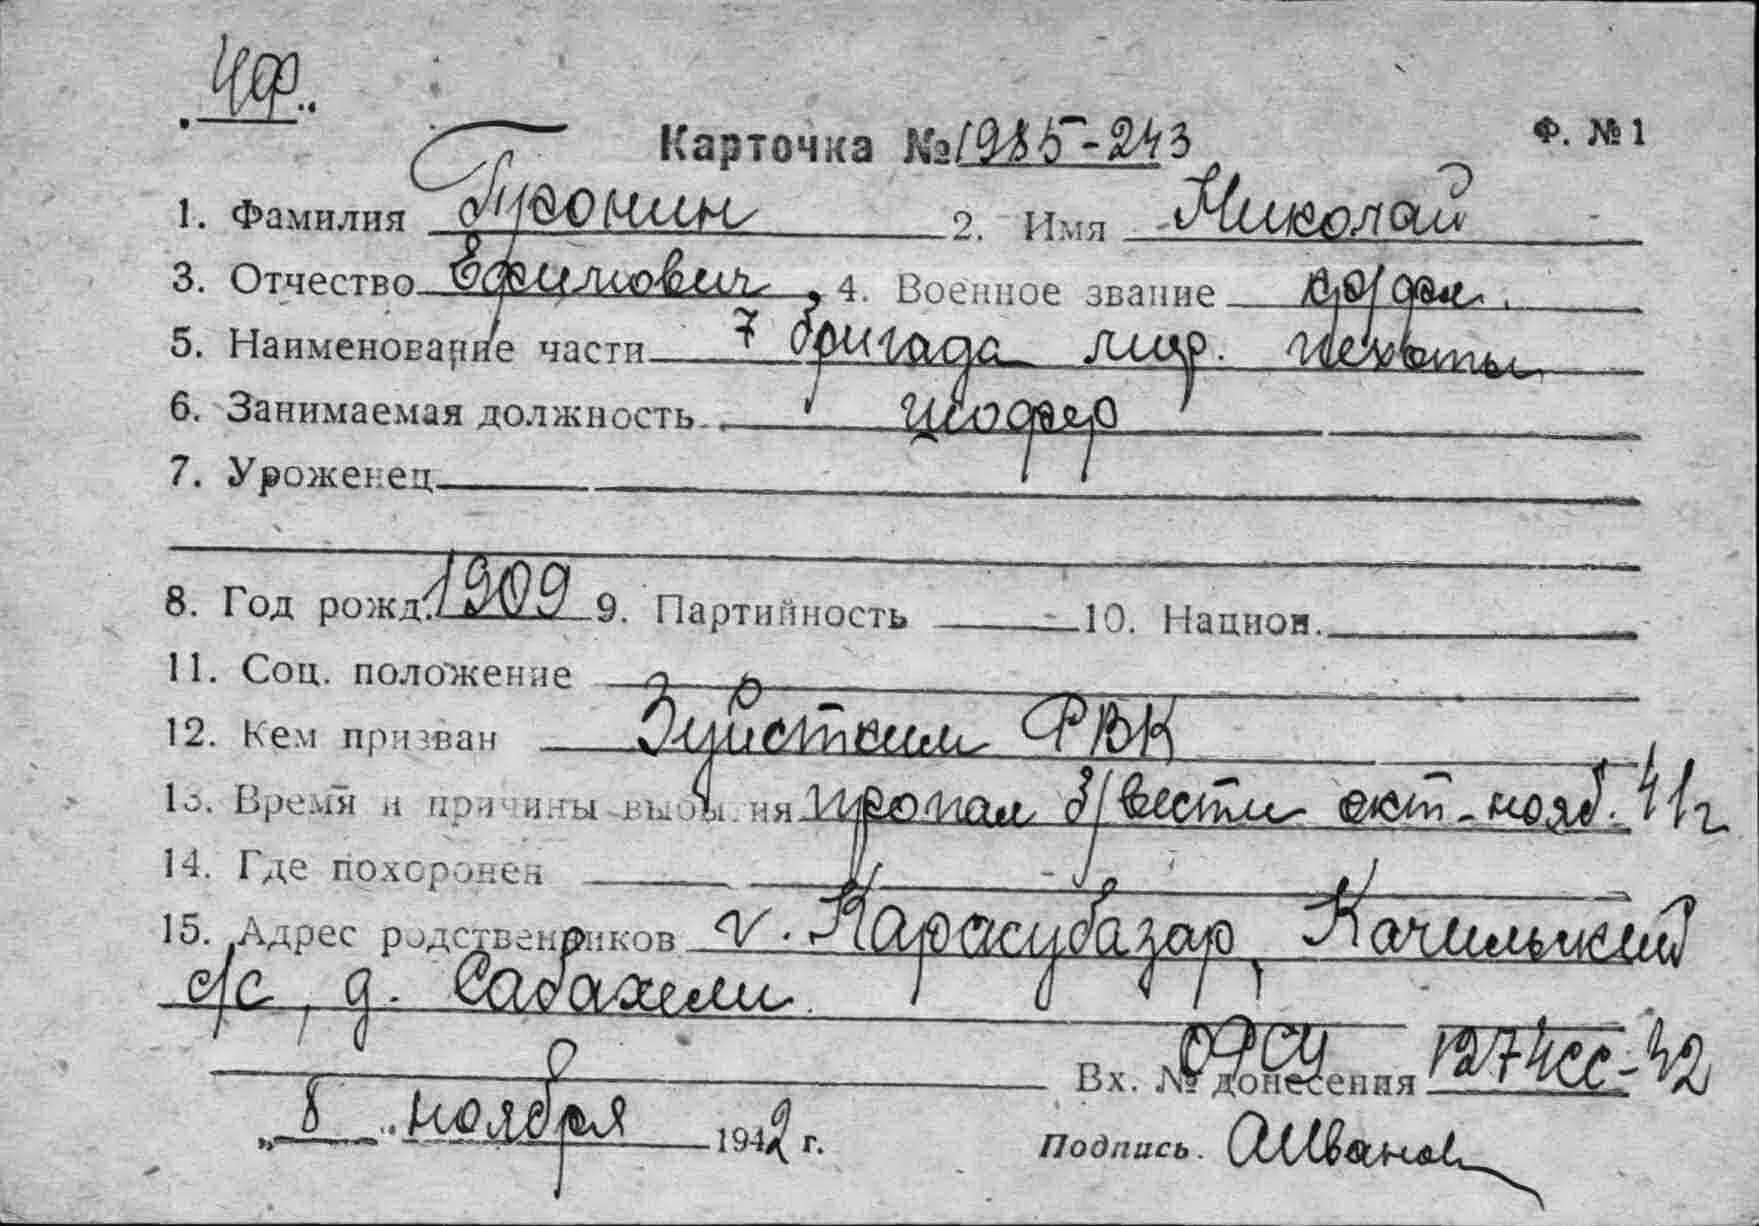 ЧФ.
Карточка № 1985-243 Ф. № 1
1. Фамилия Гусонин 2. Имя Николай
3. Отчество Ефимович, 4. Военное звание кр/фл.
5. Наименование части 7 бригада мор. пехоты
6. Занимаемая должность шофер
7. Уроженец
8. Год рожд. 1909 9. Партийность 10. Национ.
11. Соц. положение
12. Кем призван Зуйстким РВК
13. Время и причины выбытия пропал б/вести окт-нояб. 41г
14. Где похоронен
15. Адрес родственников г. Карасубазар,
с/с, д.
Вх. № донесения ОРСУ 1274сс-42
„8" ноября 1942 г. Подпись. АИванов